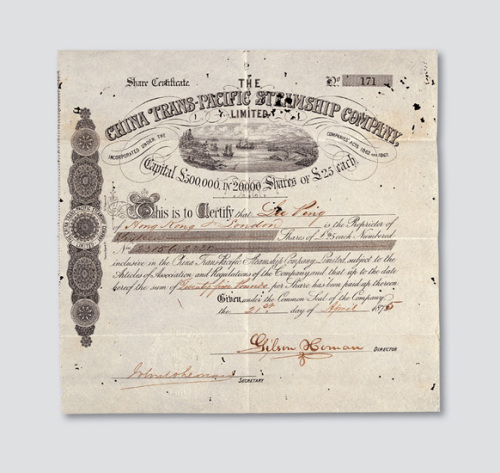 Share Certificate.
THE
No 171
CHINA TRANS-PACIFIC STEAMSHIP COMPANY,
LIMITED
INCORPORATED UNDER THE
COMPANIES ACTS 1862 AND 1867.
Capital £500,000, in 20,000 Shares of £25 each.
This is to Certify that
of Hong Kong London is the Proprietor of
Shares of £25 each Numbered
No
inclusive in the China Trans-Pacific Steamship Company Limited, subject to the
Articles of Association and Regulations of the Company and that up to the date
hereof the sum of Twenty five Pounds per Share has been paid up thereon
Given under the Common Seal of the Company
the 21st day of April 1875
DIRECTOR
SECRETARY